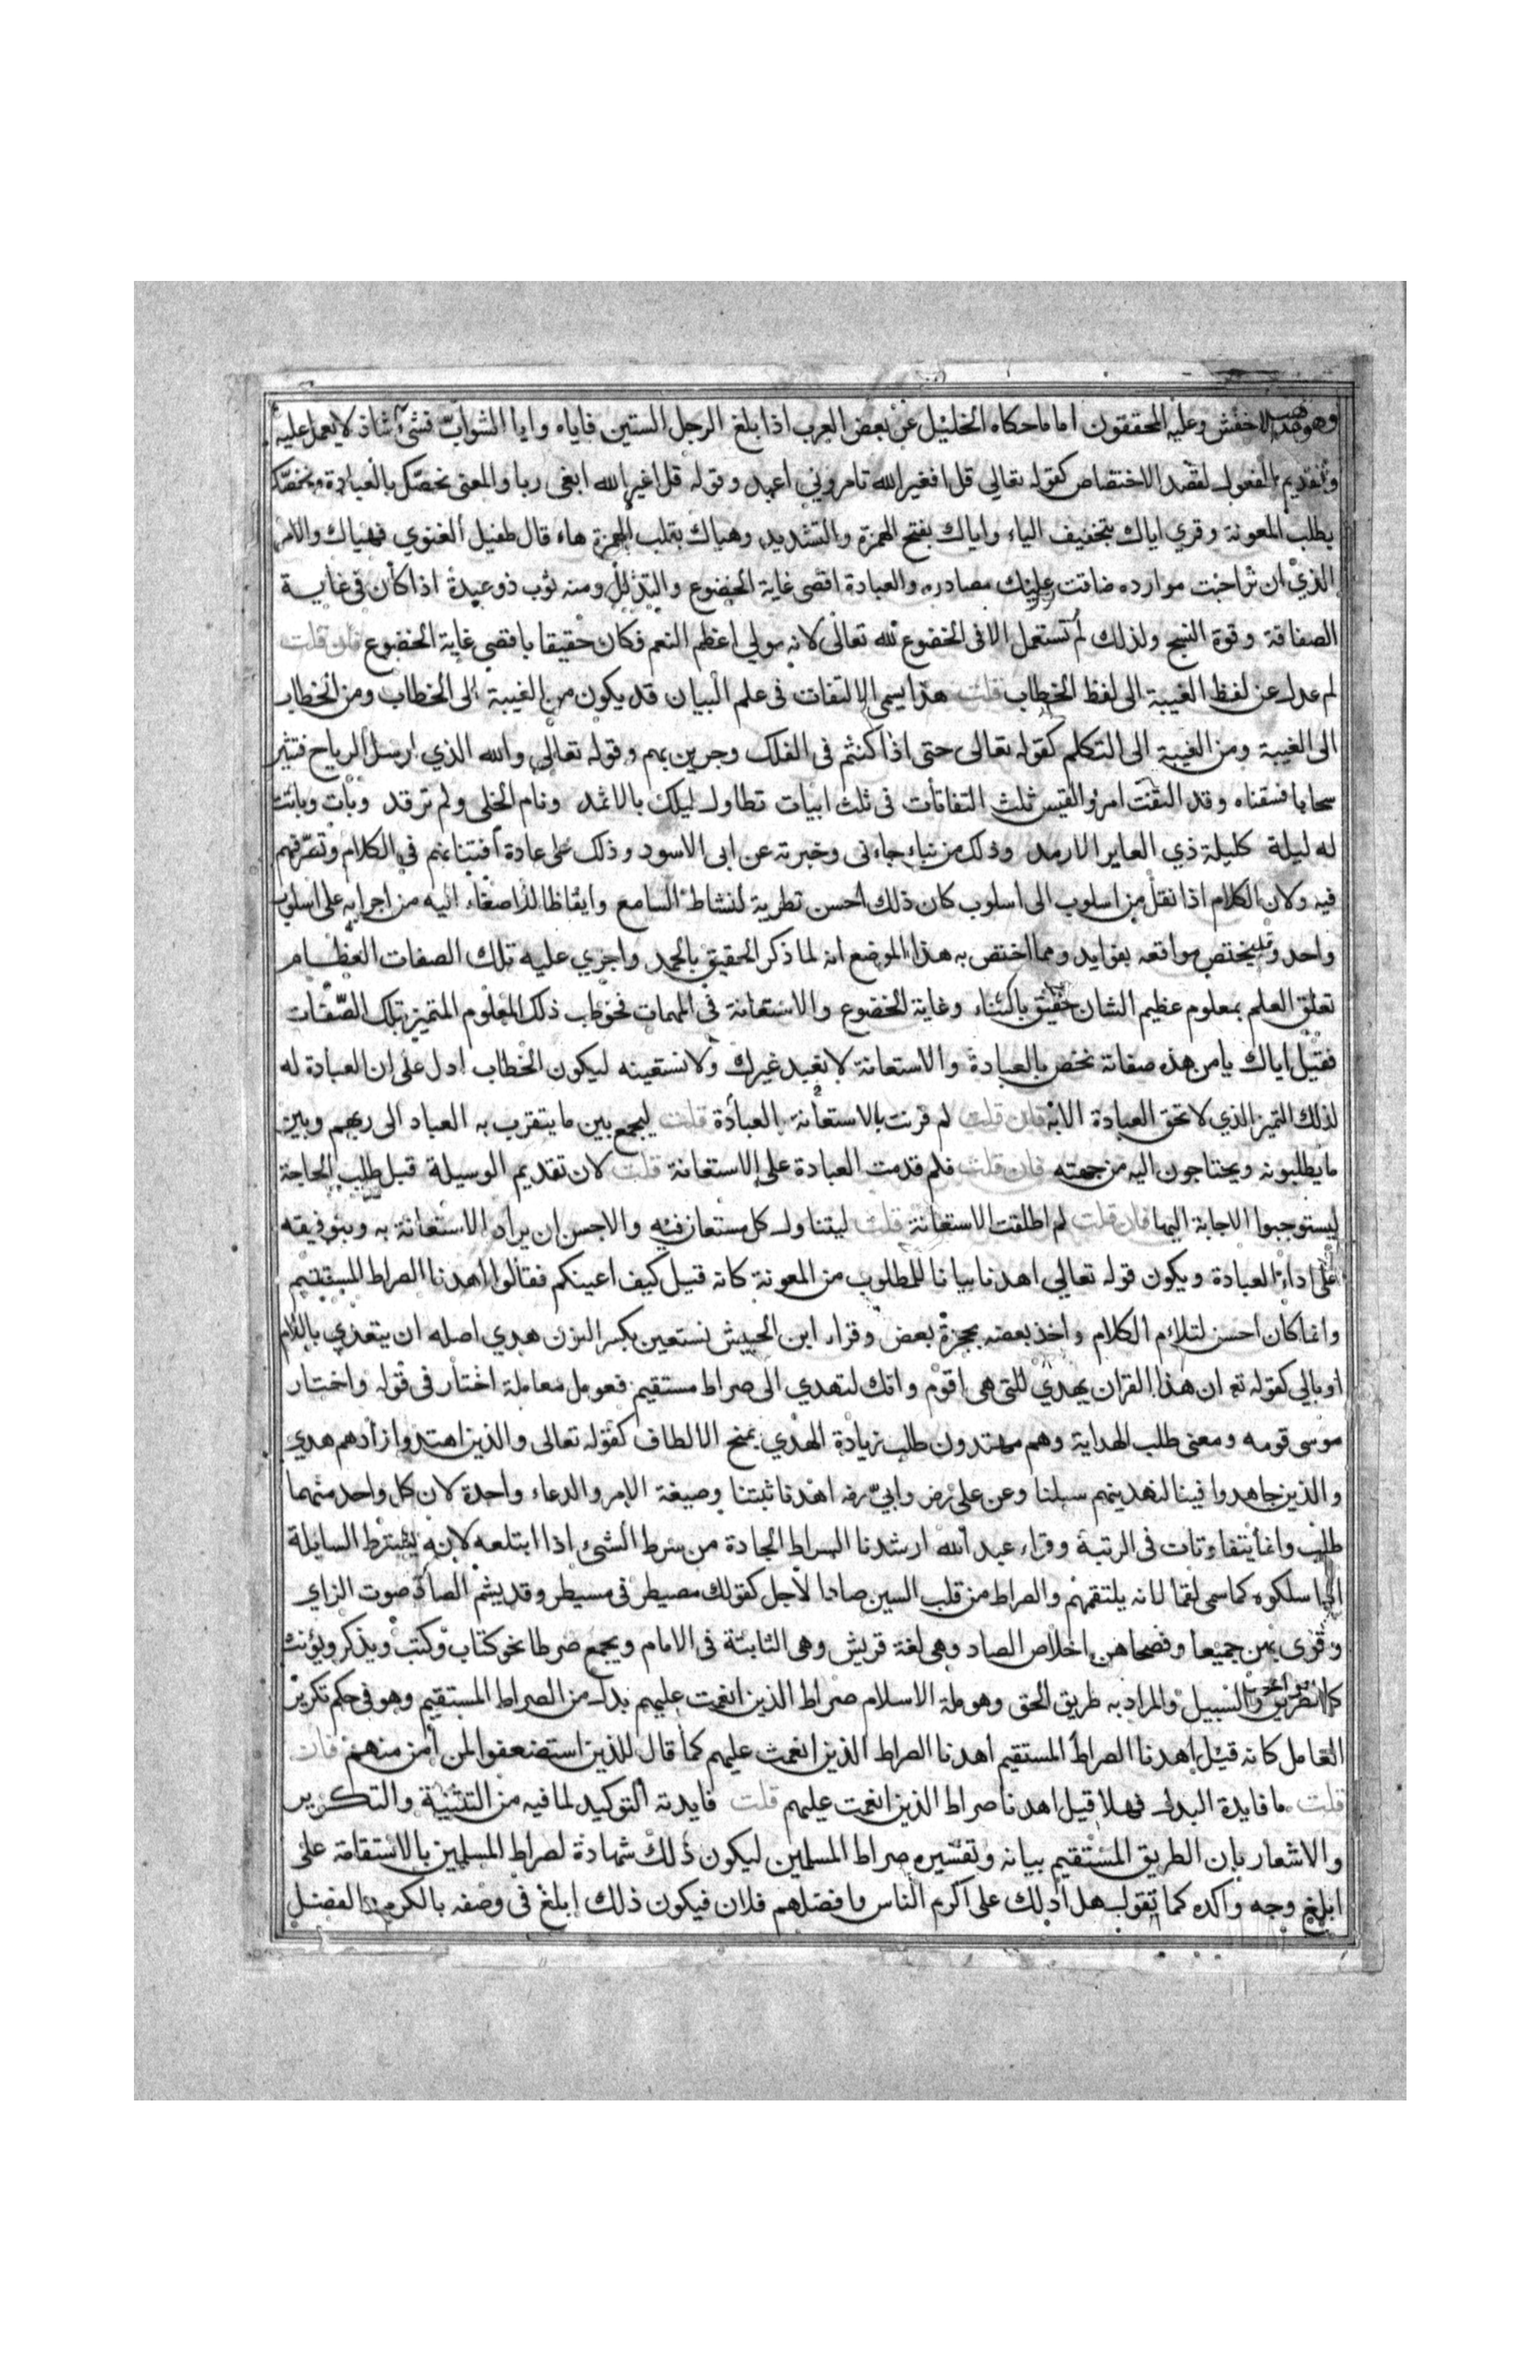 وهو مذهب الاخفش وعليه المحققون اما ما حكاه الخليل عن بعض العرب اذا بلغ الرجل الستين فاياه وايا الشواب فشئ شاذ لا يعمل عليه
وتقديم المفعول لقصد الاختصاص كقوله تعالى قل افغير الله تامروني اعبد وقوله قل اغير الله ابغى ربا والمعنى نخصك بالعبادة ونخصك
بطلب المعونة وقري اياك بتخفيف الياء واياك بفتح الهمزة والتشديد وهياك بقلب الهمزة هاء قال طفيل الغنوي فهياك والامر
الذي ان تراحبت موارده ضاقت عليك مصادره والعبادة اقصى غاية الخضوع والتذلل ومنه ثوب ذو عبدة اذا كان في غاية
الصفاقة وقوة النسج ولذلك لم تستعمل الا في الخضوع لله تعالى لانه مولي اعظم النعم فكان حقيقا باقصى غاية الخضوع فان قلت
لم عدل عن لفظ الغيبة الى لفظ الخطاب قلت هذا يسمى الالتفات في علم البيان قد يكون من الغيبة الى الخطاب ومن الخطاب
الى الغيبة ومن الغيبة الى التكلم كقوله تعالى حتى اذا كنتم في الفلك وجرين بهم وقوله تعالى والله الذي ارسل الرياح فتثير
سحابا فسقناه وقد التفت امرؤ القيس ثلث التفاتات في ثلث ابيات تطاول ليلك بالاثمد ونام الخلى ولم ترقد وبات وباتت
له ليلة كليلة ذي العاير الارمد وذلك من نباء جاءنى وخبرته عن ابى الاسود وذلك على عادة افتنانهم في الكلام وتصرفهم
فيه ولان الكلام اذا نقل من اسلوب الى اسلوب كان ذلك احسن تطرية لنشاط السامع وايقاظا للاصغاء اليه من اجرايه على اسلوب
واحد وقد يختص مواقعه بفوايد ومما اختص به هذا الموضع انه لما ذكر الحقيق بالحمد واجري عليه تلك الصفات العظام
تعلق العلم بمعلوم عظيم الشان حقيق بالثناء وغاية الخضوع والاستعانة في المهمات فخوطب ذلك المعلوم المتميز بتلك الصفات
فقيل اياك يا من هذه صفاته نخص بالعبادة والاستعانة لا نعبد غيرك ولا نستعينه ليكون الخطاب ادل على ان العبادة له
لذلك التميز الذي لا تحق العبادة الا به فان قلت لم قرنت بالاستعانة العبادة قلت ليجمع بين ما يتقرب به العباد الى ربهم وبين
ما يطلبونه ويحتاجون اليه من جهته فان قلت فلم قدمت العبادة على الاستعانة قلت لان تقديم الوسيلة قبل طلب الحاجة
ليستوجبوا الاجابة اليها فان قلت لم اطلقت الاستعانة قلت ليتناول كل مستعان فيه والاحسن ان يراد الاستعانة به وبتوفيقه
على اداء العبادة ويكون قوله تعالي اهدنا بيانا للمطلوب من المعونة كانه قيل كيف اعينكم فقالوا اهدنا الصراط المستقيم
وانما كان احسن لتلاؤم الكلام واخذ بعضه بحجزة بعض وقراء ابن الحبيش نستعين بكسر النون هدي اصله ان يتعدي باللام
او بالي كقوله تع ان هذا القران يهدي للتي هي اقوم وانك لتهدي الى صراط مستقيم فعومل معاملة اختار في قوله واختار
موسى قومه ومعنى طلب الهداية وهم مهتدون طلب زيادة الهدي بمنح الالطاف كقوله تعالى والذين اهتدوا زادهم هدي
والذين جاهدوا فينا لنهدينهم سبلنا وعن علي رض وابي رض اهدنا ثبتنا وصيغة الامر والدعاء واحدة لان كل واحد منهما
طلب وانما يتفاوتان في الرتبة وقراء عبد الله ارشدنا السراط الجادة من سرط الشئ اذا ابتلعه لانه يسترط السابلة
اذا سلكوه كما سمي لقما لانه يلتقمهم والصراط من قلب السين صادا لاجل كقولك مصيطر في مسيطر وقد يشم الصاد صوت الزاي
وقرى بهن جميعا وفصحاهن اخلاص الصاد وهى لغة قريش وهى الثابتة في الامام ويجمع صرطا نحو كتاب وكتب ويذكر ويؤنث
كالطريق والسبيل والمراد به طريق الحق وهو ملة الاسلام صراط الذين انعمت عليهم بدل من الصراط المستقيم وهو في حكم تكرير
العامل كانه قيل اهدنا الصراط المستقيم اهدنا الصراط الذين انعمت عليهم كما قال للذين استضعفوا لمن امن منهم فان
قلت ما فايدة البدل فهلا قيل اهدنا صراط الذين انعمت عليهم قلت فايدته التوكيد لما فيه من التثنية والتكرير
والاشعار بان الطريق المستقيم بيانه وتفسيره صراط المسلمين ليكون ذلك شهادة لصراط المسلمين بالاستقامة على
ابلغ وجه واكده كما تقول هل ادلك على اكرم الناس وافضلهم فلان فيكون ذلك ابلغ في وصفه بالكرم والفضل